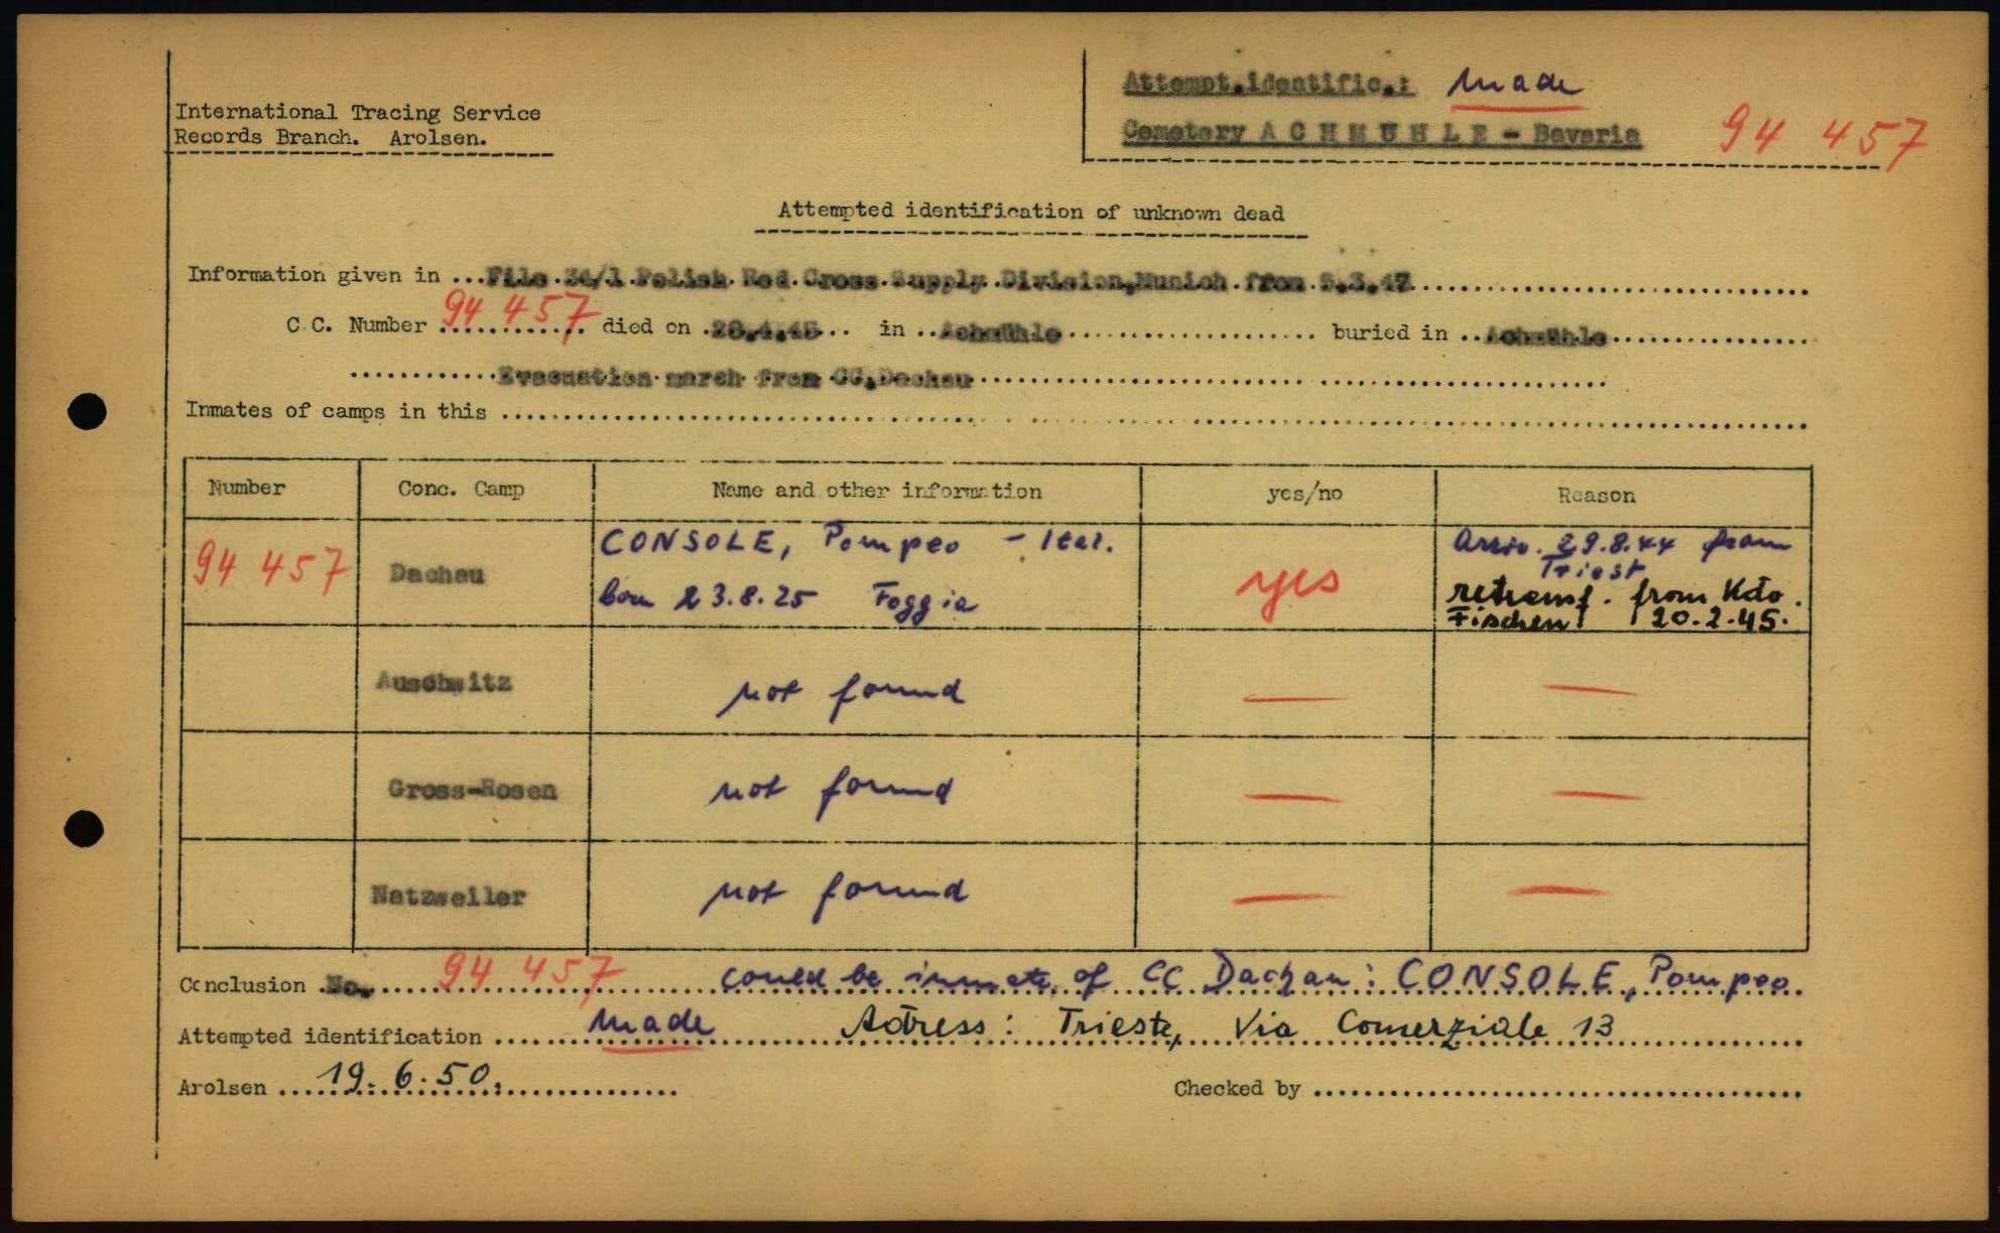 International Tracing Service
Records Branch. Arolsen.
Attempt.identific.: made
Cemetery ACHMÜHLE - Bavaria 94 457
Attempted identification of unknown dead
Information given in ...File 34/1 Polish Red Cross Supply Division,Munich from 5.3.47
C.C. Number 94 457 died on 28.4.45 in Achmühle buried in Achmühle
Evacuation march from CC.Dachau
Inmates of camps in this
Number Conc. Camp Name and other information yes/no Reason
94 457 Dachau CONSOLE, Pompeo - Ital. yes Arriv. 29.8.44 from
Triest
born 23.8.25 Foggia retransf. from Kdo.
Fischen 20.2.45.
Auschwitz not found — —
Gross-Rosen not found — —
Natzweiler not found — —
Conclusion No. 94 457 could be inmate of CC Dachau: CONSOLE, Pompeo
Attempted identification made Adress: Trieste, Via Comerziale 13
Arolsen 19.6.50. Checked by